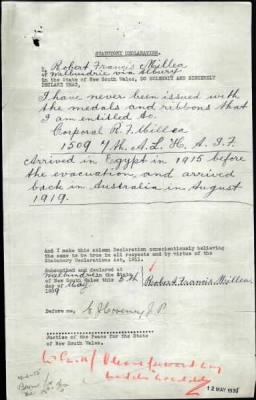 STATUTORY DECLARATION.
I, Robert Francis Millea
of Walbundrie via Albury
in the State of New South Wales, DO SOLEMNLY AND SINCERELY
DECLARE THAT,
I have never been issued with
the medals and ribbons that
I am entitled to.
Corporal R. F. Millea
1509 7th A. L. H. A. I. F.
Arrived in Egypt in 1915 before
the evacuation, and arrived
back in Australia in August
1919.
And I make this solemn Declaration conscientiously believing
the same to be true in all respects and by virtue of the
Statutory Declarations Act, 1911.
Subscribed and declared at
Walbundrie in the State
of New South Wales this 5th
day of May
1939
Robert Francis Millea
Before me,
J.P.
Justice of the Peace for the State
of New South Wales.
12 MAY 1939